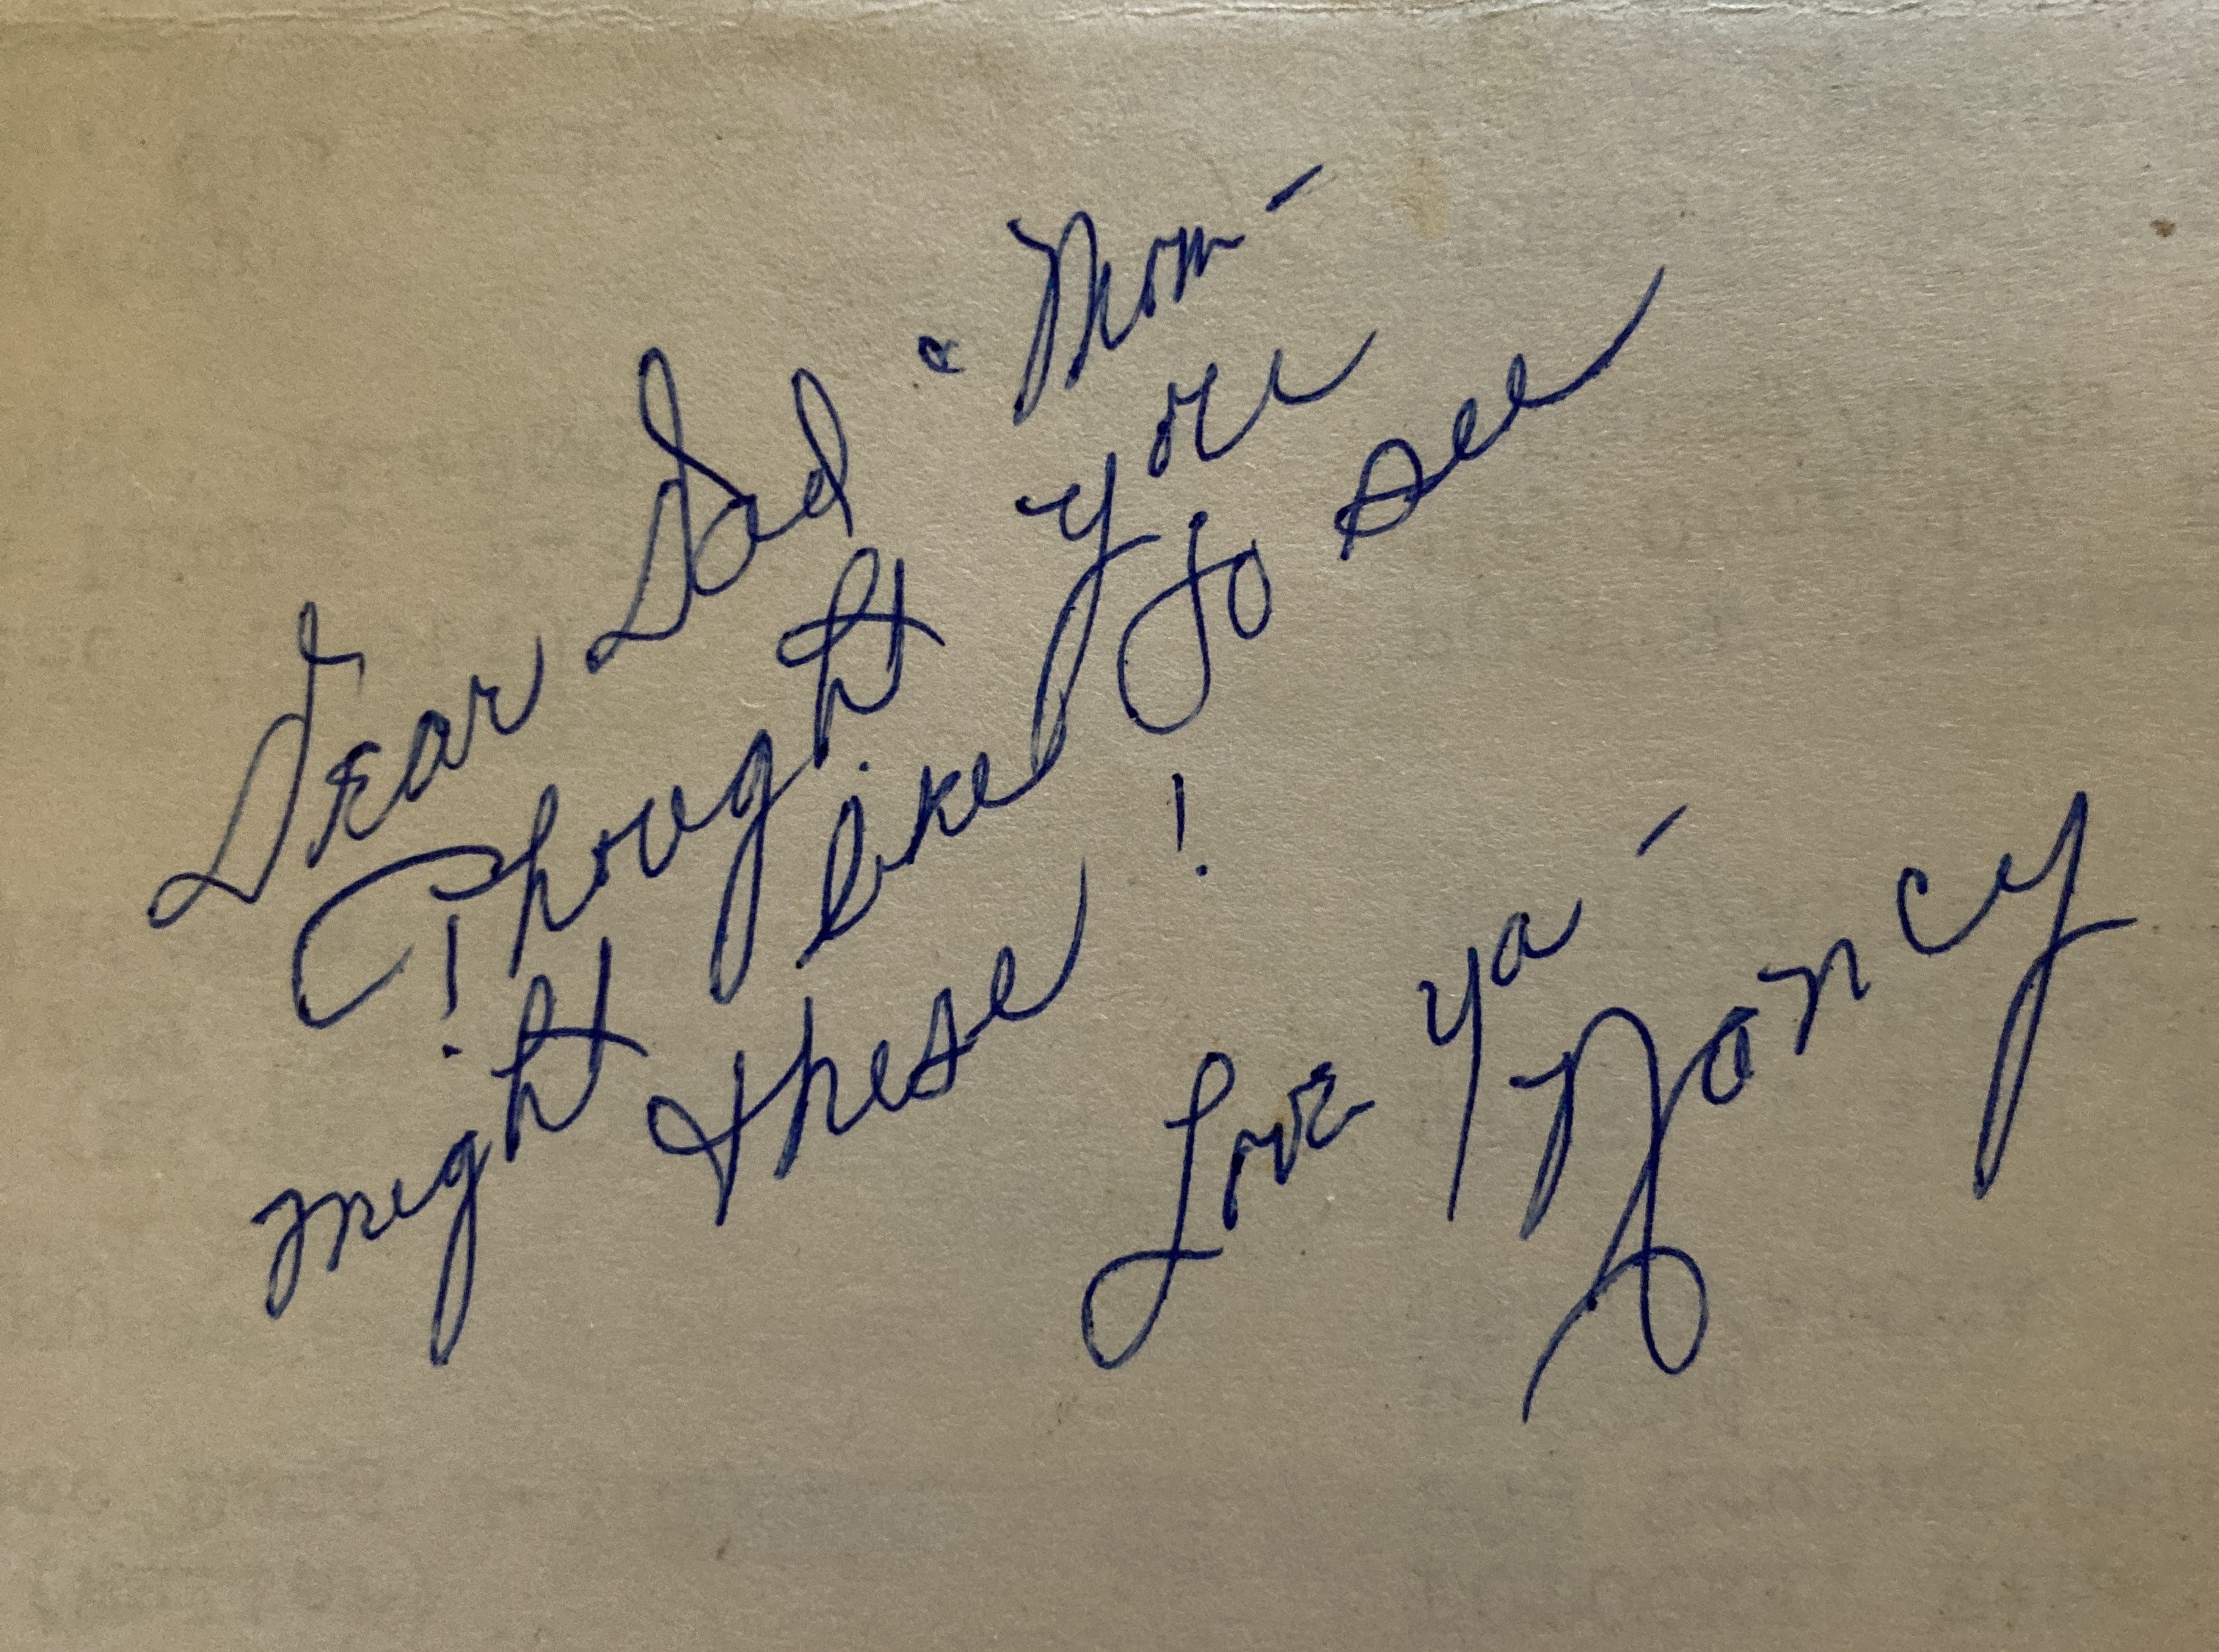 Dear Dad & Mom -
Thought you
might like to see
these!
Love Ya -
Nancy